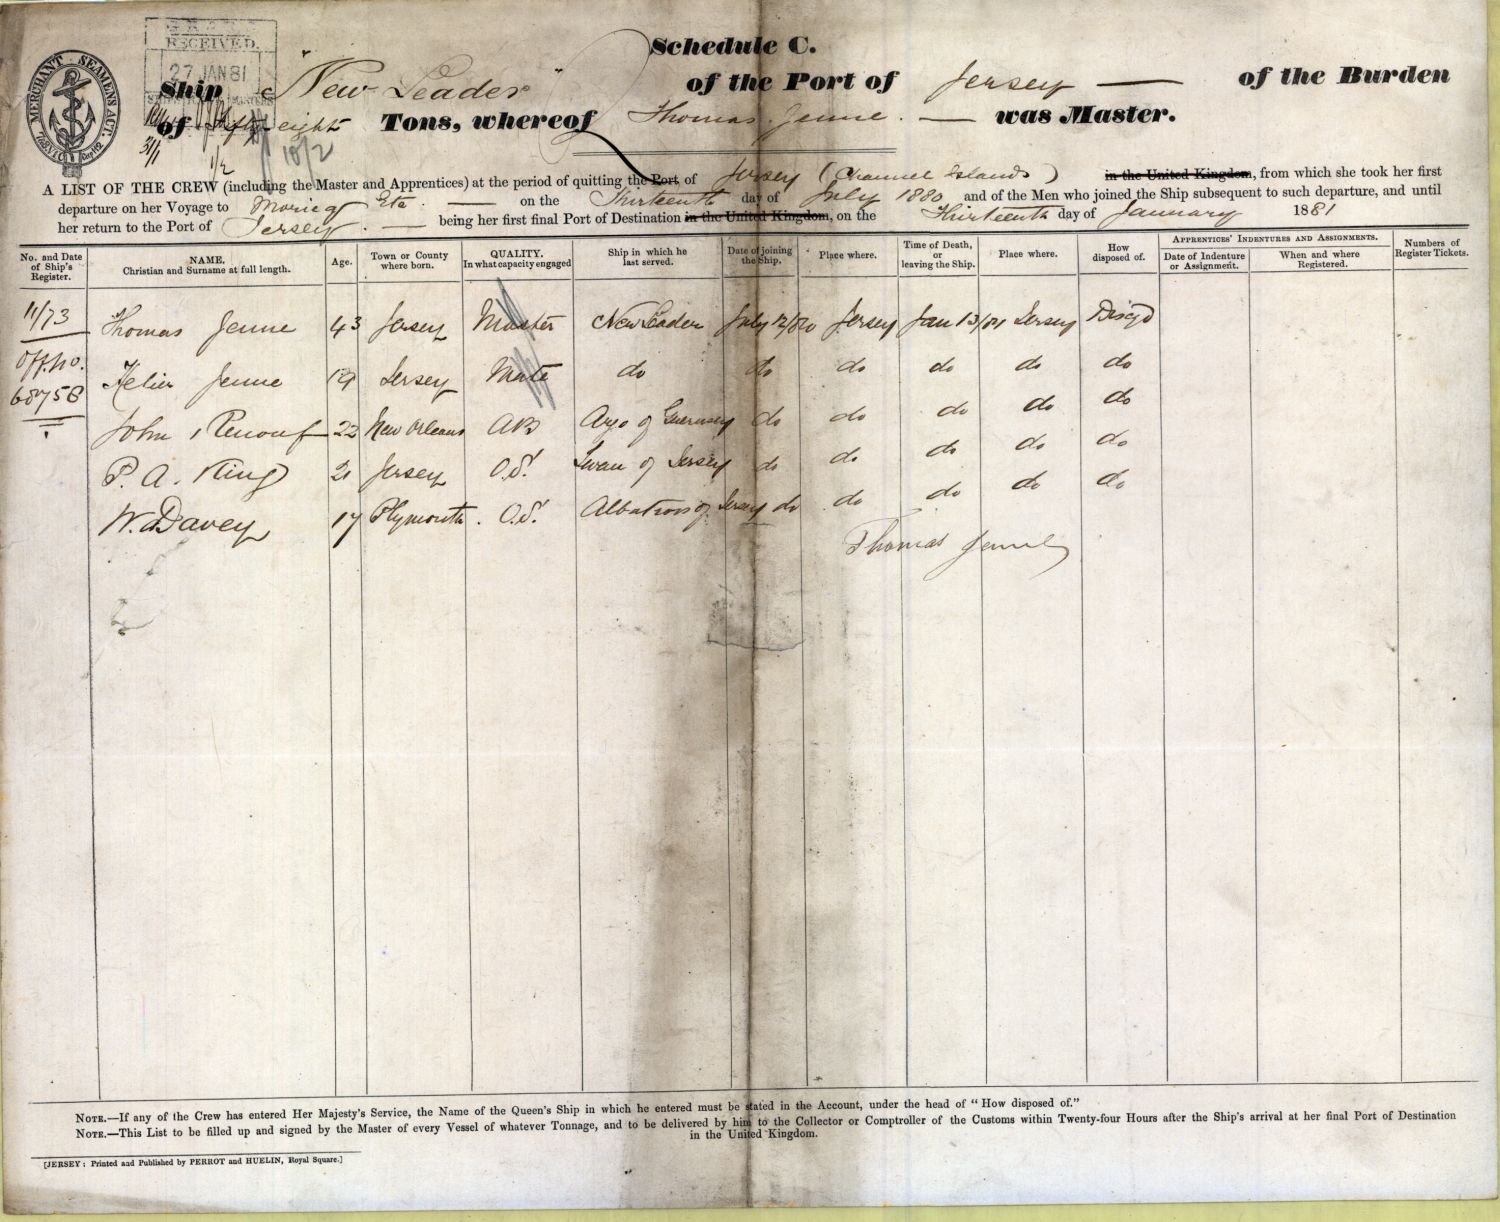 Schedule C.
G.R.G.S.S.
RECEIVED.
27 JAN 81
MERCHANT SEAMENS ACT.
Ship "New Leader" of the Port of Jersey — of the Burden
of fifty eight Tons, whereof Thomas Jenne. — was Master.
31/1 1/2 10/2
A LIST OF THE CREW (including the Master and Apprentices) at the period of quitting the Port of Jersey (Channel Islands) in the United Kingdom, from which she took her first
departure on her Voyage to Etc. — on the Thirteenth day of July 1880 and of the Men who joined the Ship subsequent to such departure, and until
her return to the Port of Jersey. — being her first final Port of Destination in the United Kingdom, on the Thirteenth day of January 1881
No. and Date of Ship's Register. NAME. Christian and Surname at full length. Age. Town or County where born. QUALITY. In what capacity engaged Ship in which he last served. Date of joining the Ship. Place where. Time of Death, or leaving the Ship. Place where. How disposed of. APPRENTICES' INDENTURES AND ASSIGNMENTS. Date of Indenture or Assignment. When and where Registered. Numbers of Register Tickets.
11/73 Thomas Jenne 43 Jersey Master New Leader July 12/80 Jersey Jan 13/81 Jersey Disgd
Off. No. Helier Jenne 19 Jersey Mate do do do do do do
68758 John Renouf 22 New Orleans AB Argo of Guernsey do do do do do
P. A. King 21 Jersey O.S. Swan of Jersey do do do do do
W. Davey 17 Plymouth. O.S. Albatross of Jersey do do do do do
Thomas Jenne
NOTE.—If any of the Crew has entered Her Majesty's Service, the Name of the Queen's Ship in which he entered must be stated in the Account, under the head of "How disposed of."
NOTE.—This List to be filled up and signed by the Master of every Vessel of whatever Tonnage, and to be delivered by him to the Collector or Comptroller of the Customs within Twenty-four Hours after the Ship's arrival at her final Port of Destination
in the United Kingdom.
[JERSEY: Printed and Published by PERROT and HUELIN, Royal Square.]